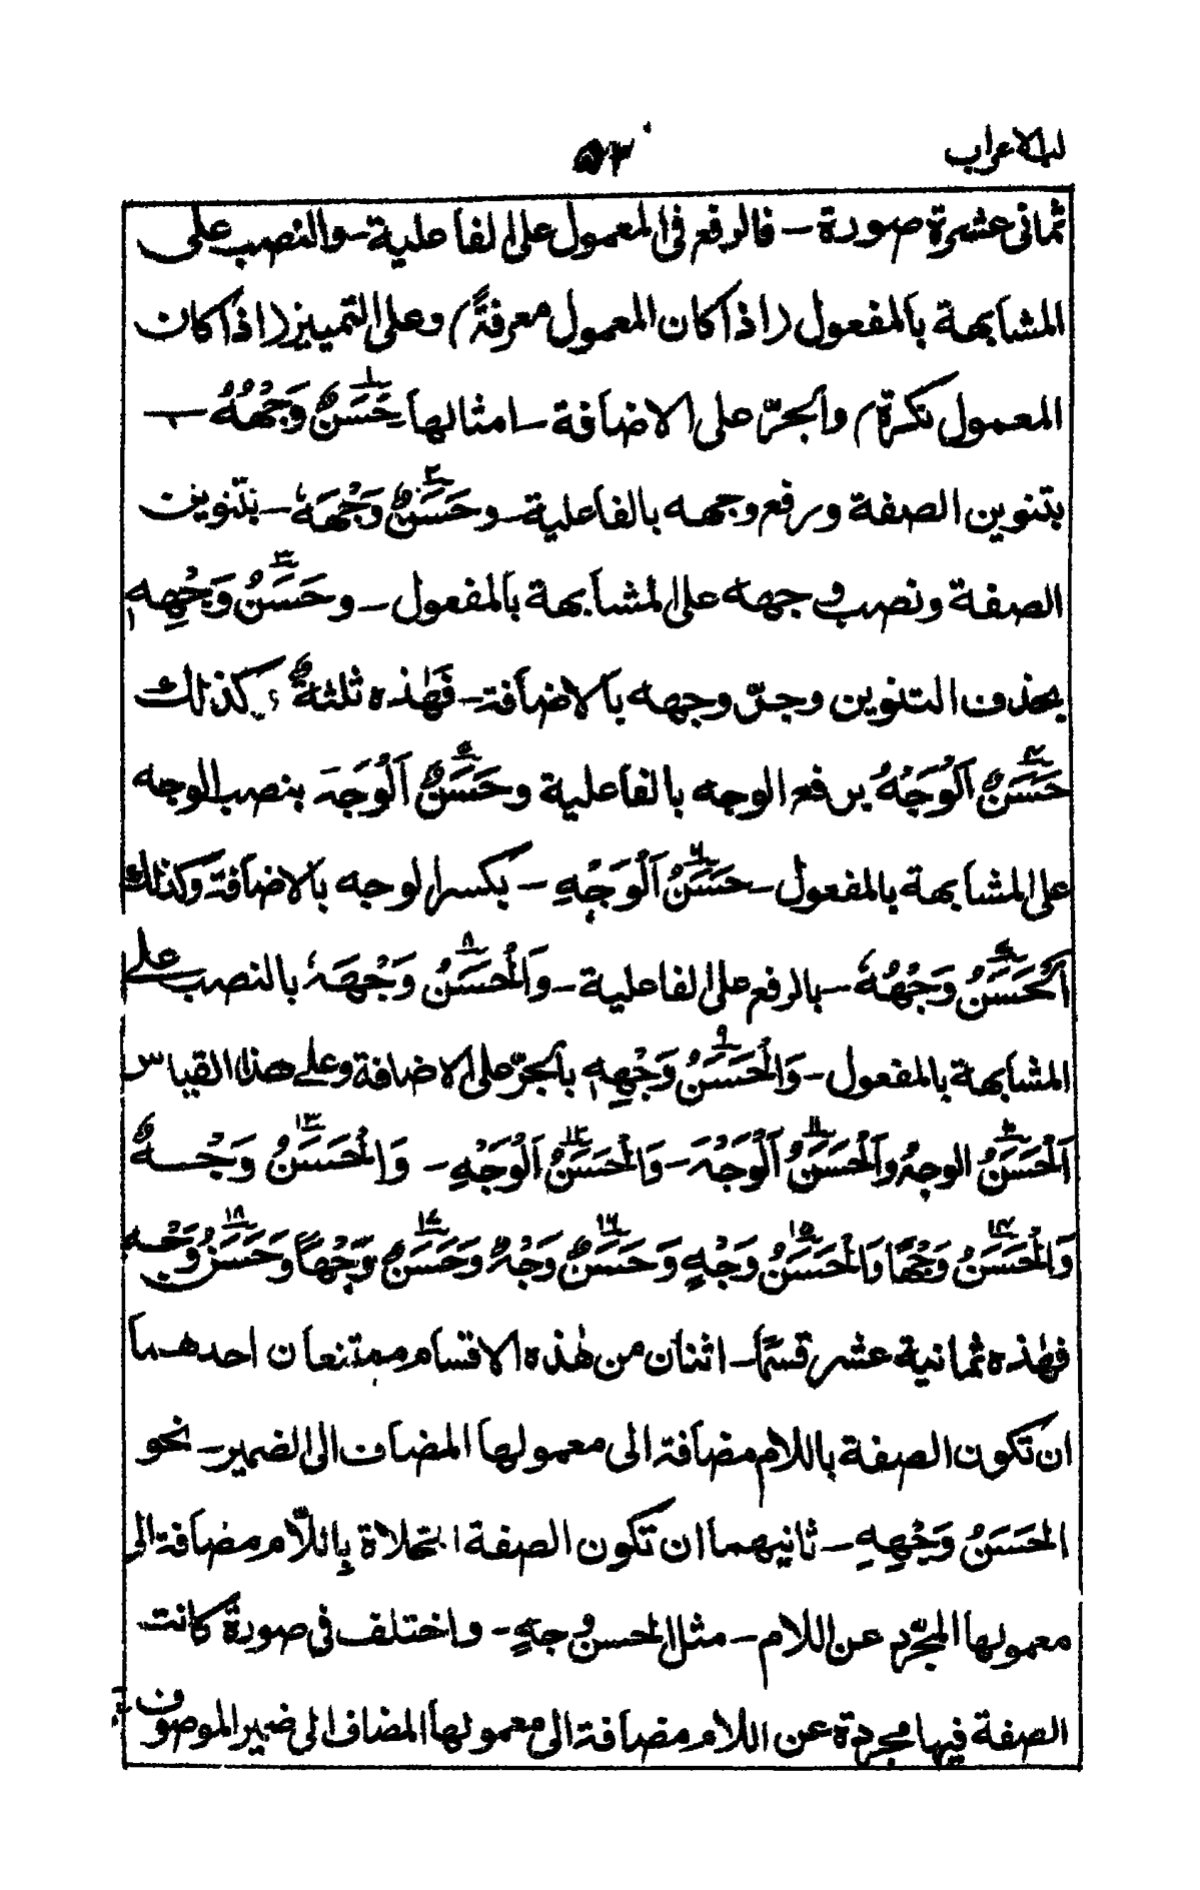 لب الاعراب
٥٣
ثمانى عشرة صورة - فالرفع فى المعمول على الفاعلية - والنصب على
المشابهة بالمفعول (اذا كان المعمول معرفةً) وعلى التمييز (اذا كان
المعمول نكرة) والجرّ على الاضافة - امثالها حَسَنٌ وَجْهُهُ - ١
بتنوين الصفة ورفع وجهه بالفاعلية - وحَسَنٌ وَجْهَهٗ - بتنوين ٢
الصفة ونصب وجهه على المشابهة بالمفعول - وحَسَنُ وَجْهِهٖ ٣
بحذف التنوين وجرّ وجهه بالاضافة - فَهٰذه ثلثةٌ، كذلك
حَسَنٌ اَلْوَجْهُ برفع الوجه بالفاعلية وحَسَنٌ اَلْوَجْهَ بنصب الوجه ٤ ٥
على المشابهة بالمفعول - حَسَنُ اَلْوَجْهِ - بكسر الوجه بالاضافة وكذلك ٦
اَلْحَسَنُ وَجْهُهٗ - بالرفع على الفاعلية - وَالْحَسَنُ وَجْهَهٗ بالنصب على ٧ ٨
المشابهة بالمفعول - وَالْحَسَنُ وَجْهِهٖ بالجرّ على الاضافة وعلى هذا القياس ٩
اَلْحَسَنُ الوجهُ واَلْحَسَنُ اَلْوَجْهَ - وَالْحَسَنُ اَلْوَجْهِ - وَالْحَسَنُ وَجْهٌ ١٠ ١١ ١٢ ١٣
وَالْحَسَنُ وَجْهًا وَالْحَسَنُ وَجْهٍ وَحَسَنٌ وَجْهٌ وَحَسَنٌ وَجْهًا وَحَسَنُ وَجْهٍ ١٤ ١٥ ١٦ ١٧ ١٨
فهٰذه ثمانية عشر قسمًا - اثنان من هٰذه الاقسام ممتنعان احدهما
ان تكون الصفة باللام مضافة الى معمولها المضاف الى الضمير - نحو
الحَسَنُ وَجْهِهِ - ثانيهما ان تكون الصفة المحلاة باللّام مضافة الى
معمولها المجرّد عن اللام - مثل الحسنُ وجهٍ - واختلف فى صورة كانت
الصفة فيها مجردة عن اللام مضافة الى معمولها المضاف الى ضمير الموصوف